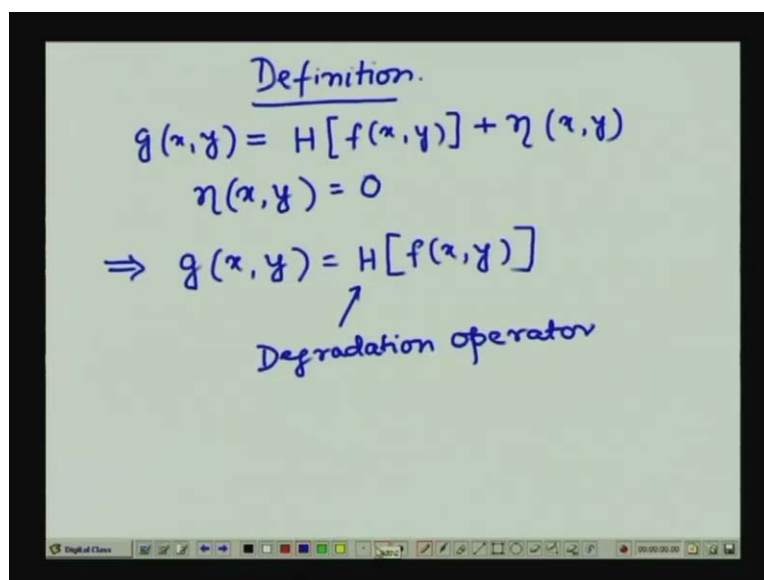 Definition.
g(x,y) = H[f(x,y)] + η(x,y)
η(x,y) = 0
⇒ g(x,y) = H[f(x,y)]
Degradation operator
Digital Class
00:00:00.00